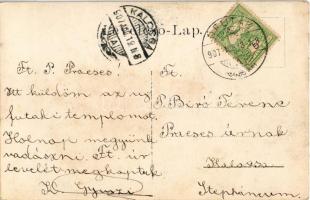 Levelező-Lap.
KALOCSA
Ft. P. Praeses!
Itt küldöm az uj
futaki templomot.
Holnap megyünk
vadászni. Ft. úr
levelét megkaptuk
Ft.
P. Biró Ferenc
Praeses úrnak
Kalocsa
Stephaneum.